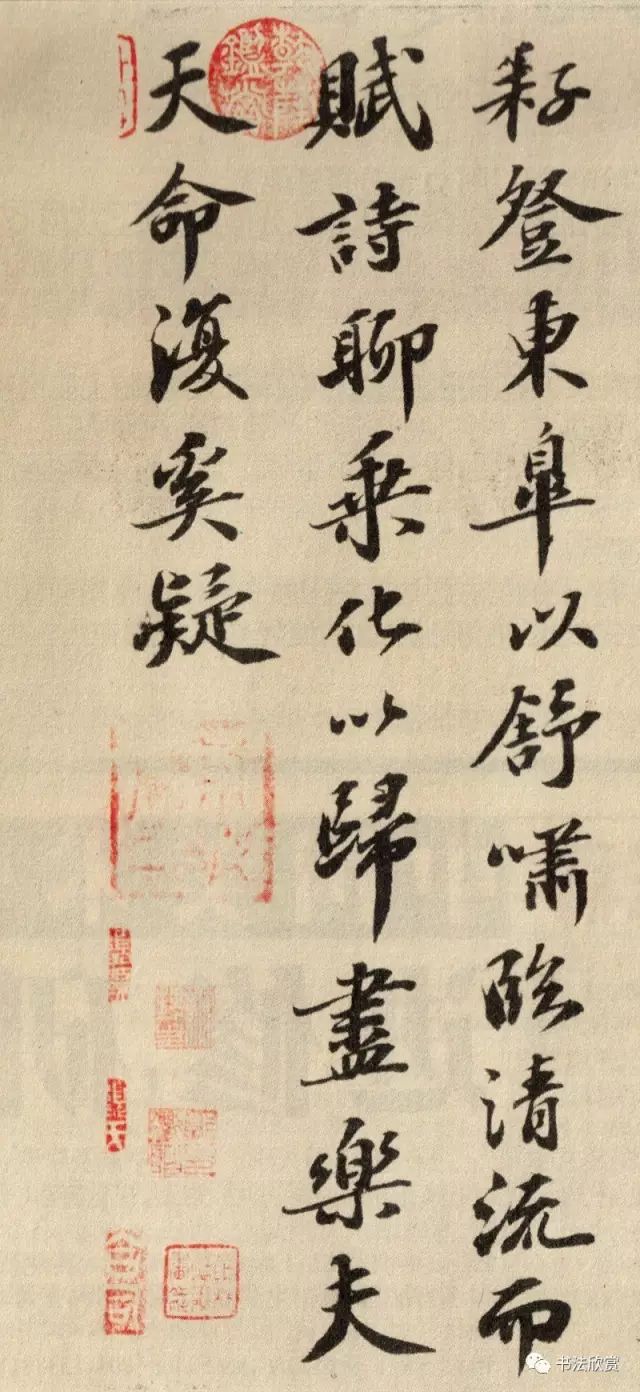 耔登東皐以舒嘯臨清流而
賦詩聊乘化以歸盡樂夫
天命復奚疑
乾隆鑑賞
书法欣赏